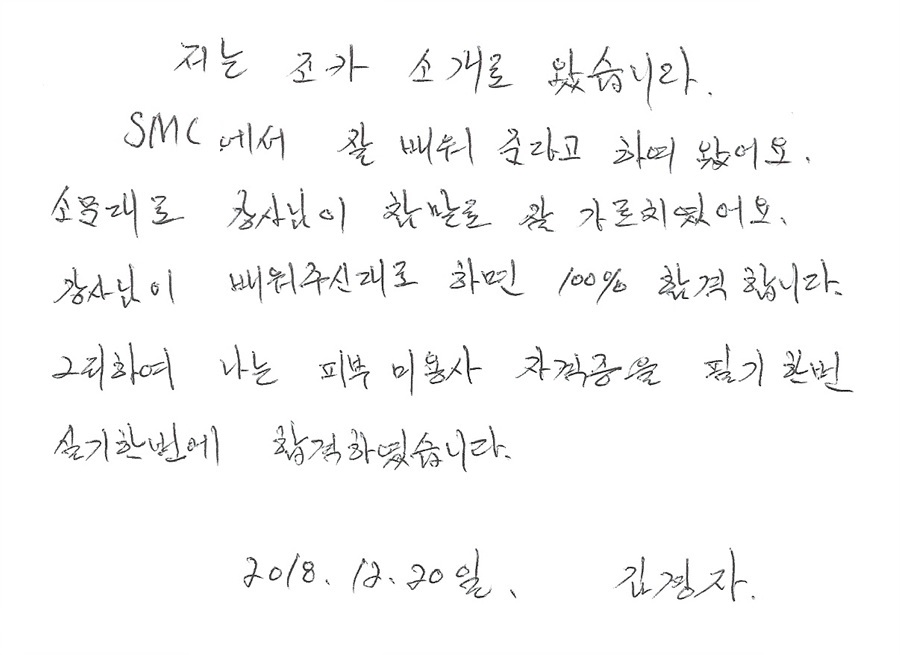 저는 조카 소개로 왔습니다.
SMC에서 잘 배워 준다고 하여 왔어요.
소문대로 강사님이 참말로 잘 가르치였어요.
강사님이 배워주신대로 하면 100% 합격 합니다.
그리하여 나는 피부 미용사 자격증을 필기 한번
실기한번에 합격하였습니다.
2018. 12. 20일. 김경자.